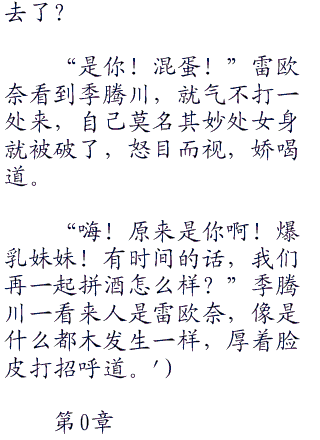 去了？
“是你！混蛋！”雷欧
奈看到季腾川，就气不打一
处来，自己莫名其妙处女身
就被破了，怒目而视，娇喝
道。
“嗨！原来是你啊！爆
乳妹妹！有时间的话，我们
再一起拼酒怎么样？”季腾
川一看来人是雷欧奈，像是
什么都木发生一样，厚着脸
皮打招呼道。′）
第0章